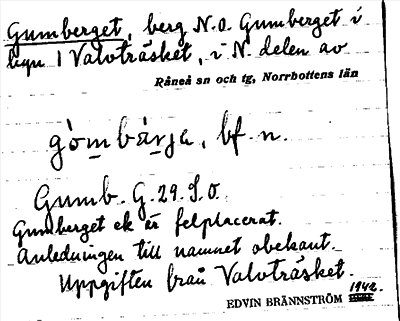 Gumberget, berg N.O. Gumberget i
byn 1 Valvträsket, i N. delen av
Råneå sn och tg, Norrbottens län
gòmbä́rjə, bf. n.
Gumb. G. 29. S.O.
Gumberget ek är felplacerat.
Anledningen till namnet obekant.
Uppgiften från Valvträsket.
EDVIN BRÄNNSTRÖM 1942.